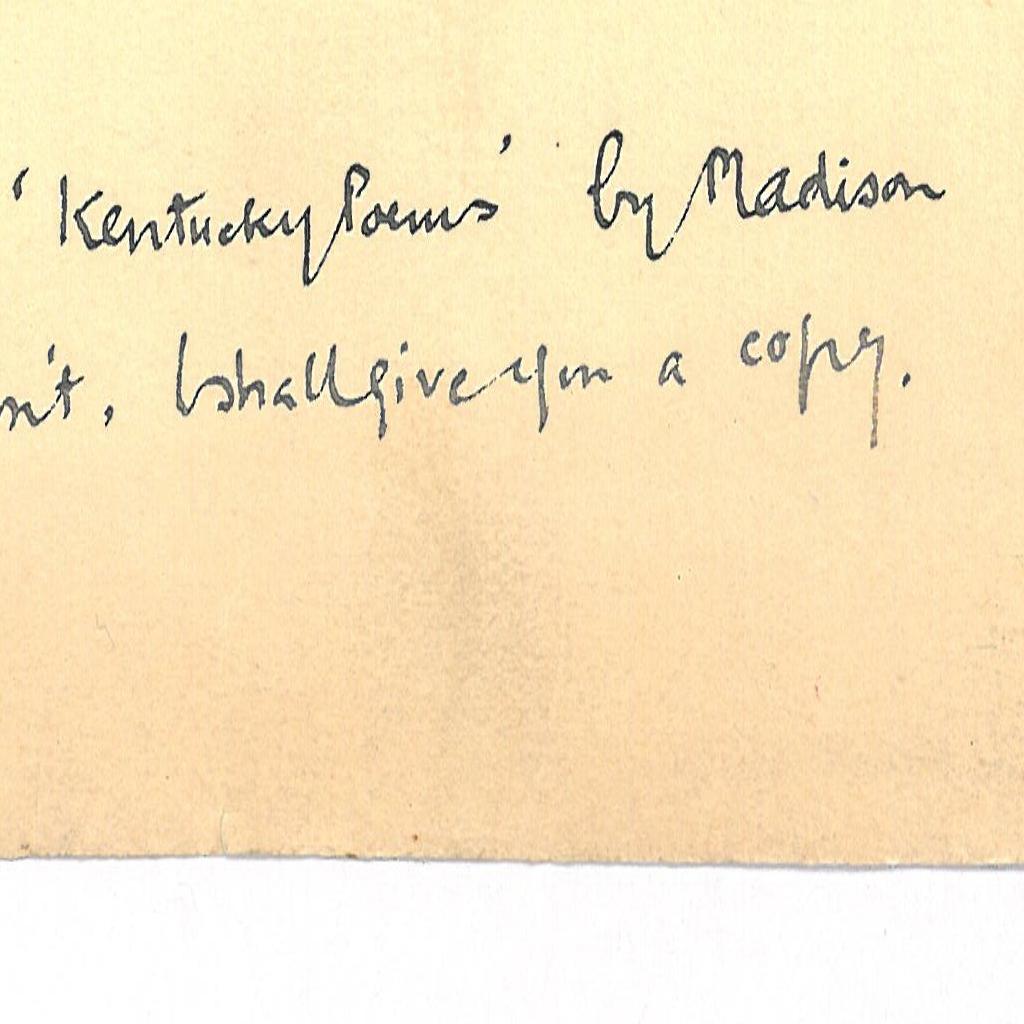 'Kentucky Poems' by Madison
n't, I shall give you a copy.